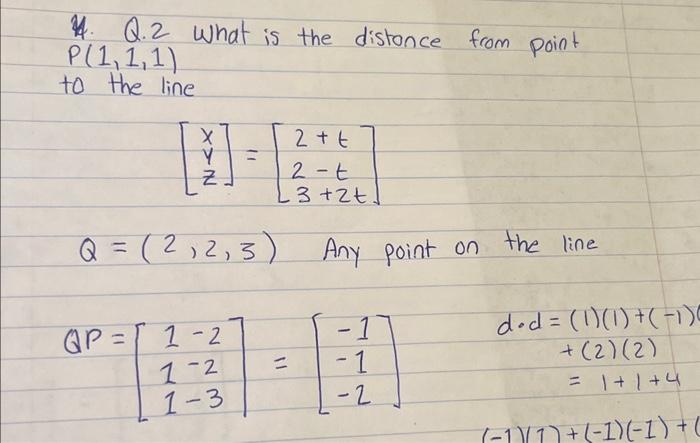 4. Q.2 What is the distance from point
P(1,1,1)
to the line
[X Y Z] = [2 + t 2 - t 3 + 2t]
Q = (2,2,3) Any point on the line
QP = [1 - 2 1 - 2 1 - 3] = [-1 -1 -2]
d•d = (1)(1) + (-1)(
+ (2)(2)
= 1 + 1 + 4
(-1)(1) + (-1)(-1) + (